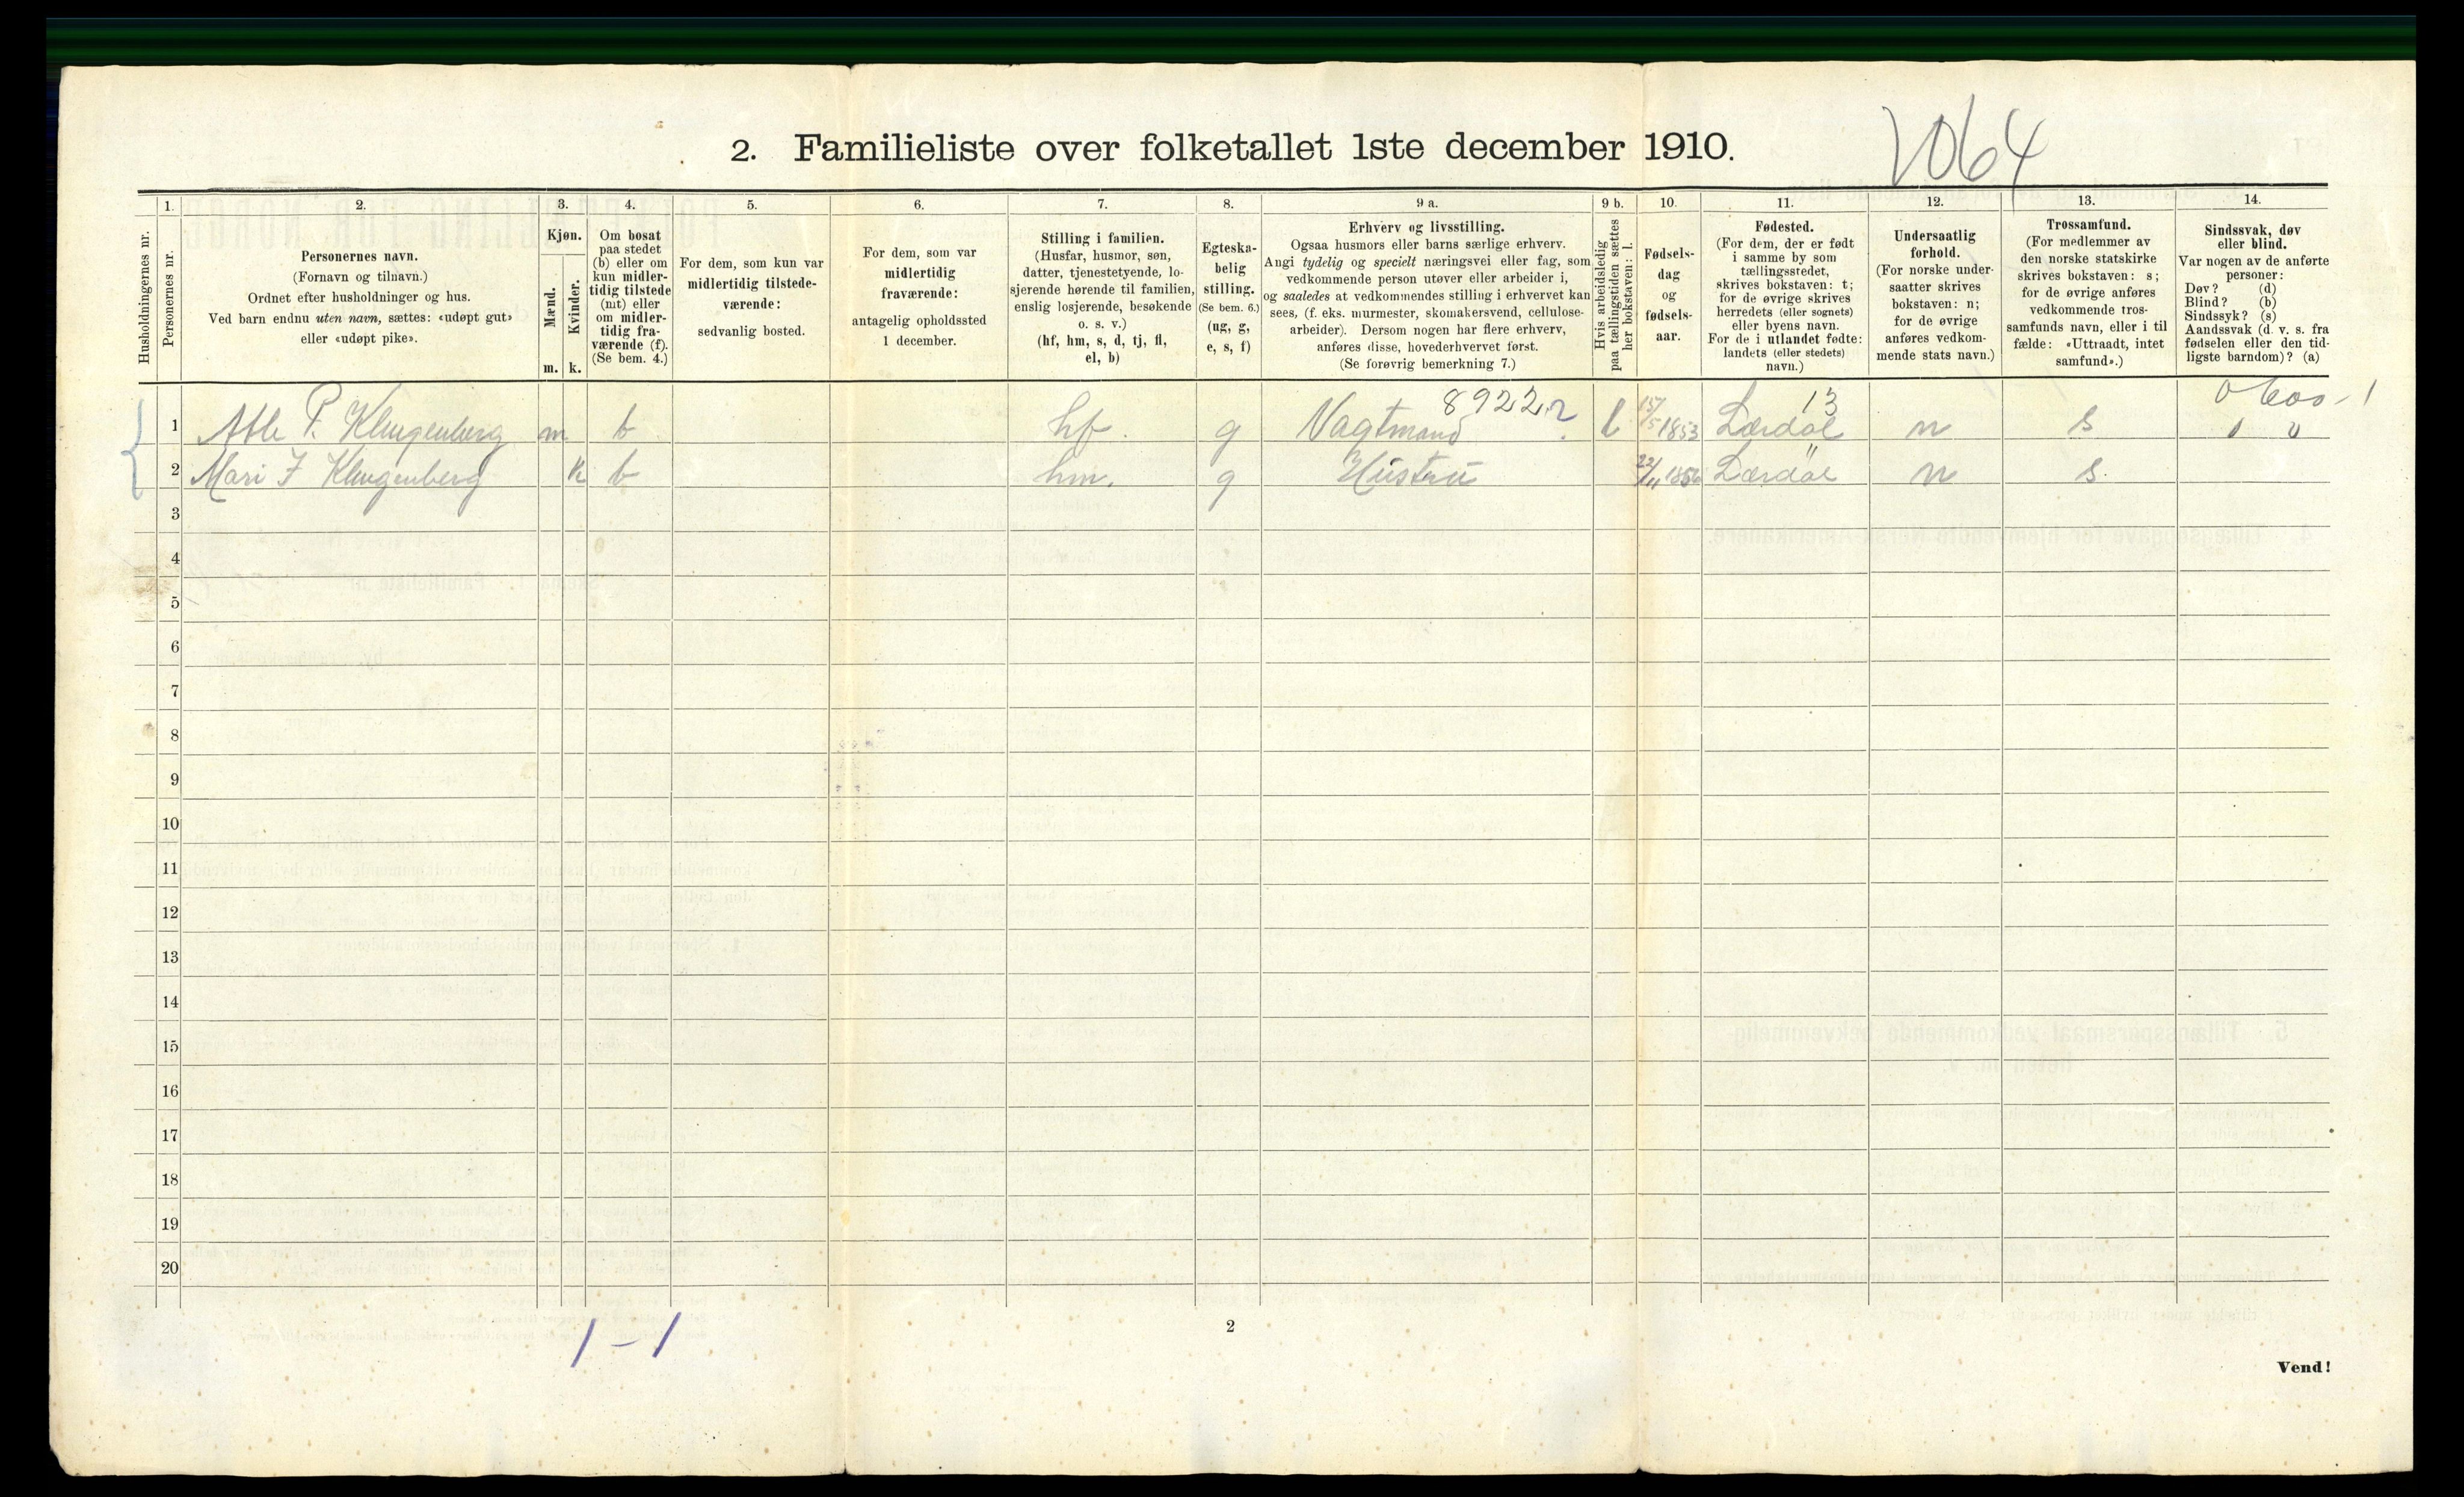 2. Familieliste over folketallet 1ste december 1910.
2064
Husholdningernes nr.
1.
Personernes nr.
2.
Personernes navn.
(Fornavn og tilnavn.)
Ordnet efter husholdninger og hus.
Ved barn endnu uten navn, sættes: «udøpt gut»
eller «udøpt pike».
3.
Kjøn.
Mænd.
m.
Kvinder.
k.
4.
Om bosat
paa stedet
(b) eller om
kun midler-
tidig tilstede
(mt) eller
om midler-
tidig fra-
værende (f).
(Se bem. 4.)
5.
For dem, som kun var
midlertidig tilstede-
værende:
sedvanlig bosted.
6.
For dem, som var
midlertidig
fraværende:
antagelig opholdssted
1 december.
7.
Stilling i familien.
(Husfar, husmor, søn,
datter, tjenestetyende, lo-
sjerende hørende til familien,
enslig losjerende, besøkende
o. s. v.)
(hf, hm, s, d, tj, fl,
el, b)
8.
Egteska-
belig
stilling.
(Se bem. 6.)
(ug, g,
e, s, f)
9 a.
Erhverv og livsstilling.
Ogsaa husmors eller barns særlige erhverv.
Angi tydelig og specielt næringsvei eller fag, som
vedkommende person utøver eller arbeider i,
og saaledes at vedkommendes stilling i erhvervet kan
sees, (f. eks. murmester, skomakersvend, cellulose-
arbeider). Dersom nogen har flere erhverv,
anføres disse, hovederhvervet først.
(Se forøvrig bemerkning 7.)
9 b.
Hvis arbeidsledig
paa tællingstiden sættes
her bokstaven: l.
10.
Fødsels-
dag
og
fødsels-
aar.
11.
Fødested.
(For dem, der er født
i samme by som
tællingsstedet,
skrives bokstaven: t;
for de øvrige skrives
herredets (eller sognets)
eller byens navn.
For de i utlandet fødte:
landets (eller stedets)
navn.)
12.
Undersaatlig
forhold.
(For norske under-
saatter skrives
bokstaven: n;
for de øvrige
anføres vedkom-
mende stats navn.)
13.
Trossamfund.
(For medlemmer av
den norske statskirke
skrives bokstaven: s;
for de øvrige anføres
vedkommende tros-
samfunds navn, eller i til
fælde: «Uttraadt, intet
samfund».)
14.
Sindssvak, døv
eller blind.
Var nogen av de anførte
personer:
Døv? (d)
Blind? (b)
Sindssyk? (s)
Aandssvak (d. v. s. fra
fødselen eller den tid-
ligste barndom)? (a)
8922 13
1 P. Klingenberg m b hf. g Vagtmand l 15/5 1853 Lærdal n s
2 Mari J Klingenberg k b hm. g Hustru 22/11 Lærdal n s.
3
4
5
6
7
8
9
10
11
12
13
14
15
16
17
18
19
20
1 - 1
2
Vend!